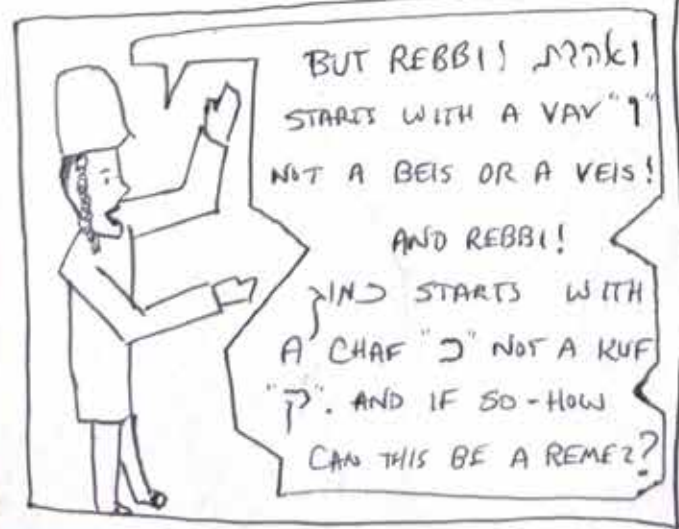 BUT REBBI! ואהבת
STARTS WITH A VAV "ו"
NOT A BEIS OR A VEIS!
AND REBBI!
כמוך STARTS WITH
A CHAF "כ" NOT A KUF
"ק". AND IF SO - HOW
CAN THIS BE A REMEZ?